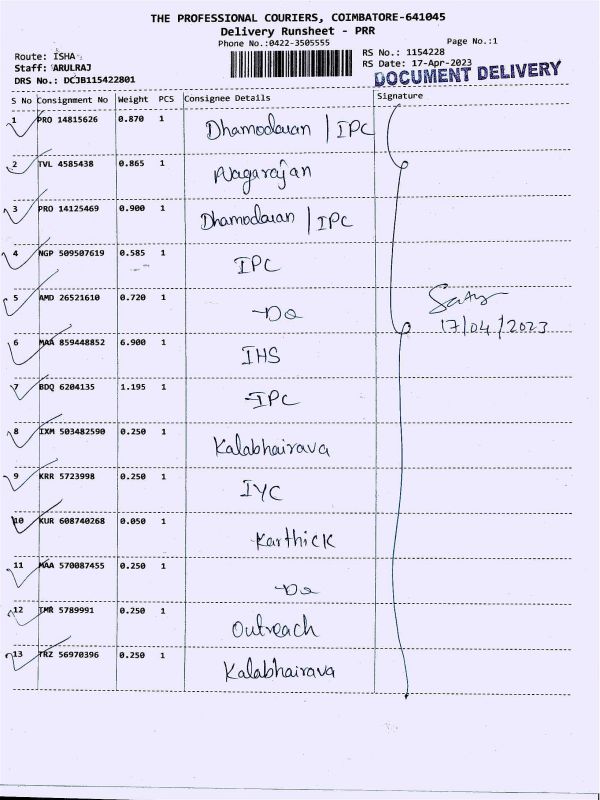 THE PROFESSIONAL COURIERS, COIMBATORE-641045
Delivery Runsheet - PRR
Phone No.:0422-3505555
Page No.:1
Route: ISHA
RS No.: 1154228
Staff: ARULRAJ
RS Date: 17-Apr-2023
DRS No.: DCJB115422801
DOCUMENT DELIVERY
S No Consignment No Weight PCS Consignee Details Signature
1 PRO 14815626 0.870 1 Dhamodaran | IPC
2 TVL 4585438 0.865 1 Nagarajan
3 PRO 14125469 0.900 1 Dhamodaran | IPC
4 NGP 509507619 0.585 1 IPC
5 AMD 26521610 0.720 1 -Do
17/04/2023
6 MAA 859448852 6.900 1 IHS
7 BDQ 6204135 1.195 1 IPC
8 IXM 503482590 0.250 1 Kalabhairava
9 KRR 5723998 0.250 1 IYC
10 KUR 608740268 0.050 1 Karthick
11 MAA 570087455 0.250 1 -Do
12 TMR 5789991 0.250 1 Outreach
13 TRZ 56970396 0.250 1 Kalabhairava